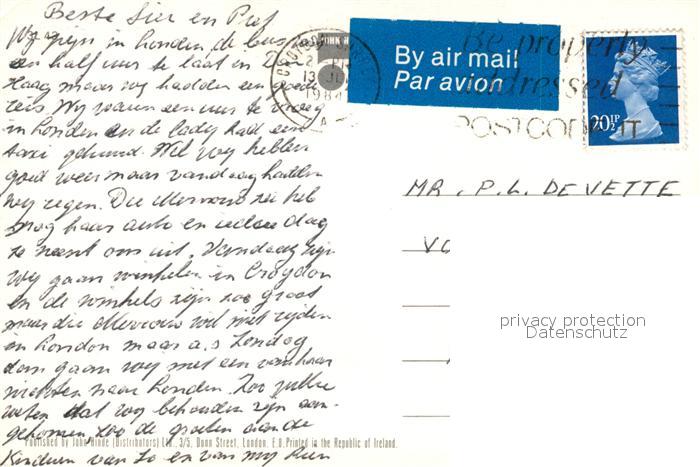 Beste Sier en Pief
Wij zijn in Londen, de bus was
een half uur te laat in Den
Haag maar wij hadden een goede
reis Wij waren een uur te vroeg
in Londen en de lady had een
taxi gehuurd. Wel wij hebben
goed weer maar vandaag hadden
wij regen. Die Mevrouw zei heb
nog haar auto en iedere dag
ze neemt ons uit. Vandaag zijn
wij gaan winkelen in Croydon
en de winkels zijn zoo groot
maar die Mevrouw wil niet rijden
in London maar a.s Zondag
dan gaan wij met een van haar
nichten naar Londen. Zoo jullie
weten dat wij behouden zijn aan-
gekomen zoo de groeten aan de
Kinderen van Jo en van mij
By air mail
Par avion
CROYDON
13 JU
1984
Be properly
addressed
POSTCODE IT
20½P
MR. P. L. DEVETTE
VO
privacy protection
Datenschutz
Published by John Hinde (Distributors) Ltd., 3/5, Dunn Street, London, E.8. Printed in the Republic of Ireland.